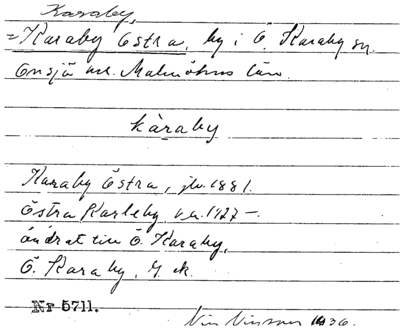 Karaby,
=Karaby Östra, by i Ö. Karaby sn.
Onsjö hd. Malmöhus län.
kàraby
Karaby Östra, jbr. 1881.
Östra Karleby, 1922 –
ändrat till Ö. Karaby,
Ö. Karaby, G. k.
Nr 5711.
1936.